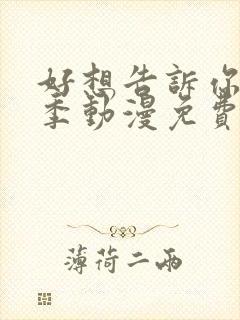 好想告訴你
季動漫免費
薄荷二兩